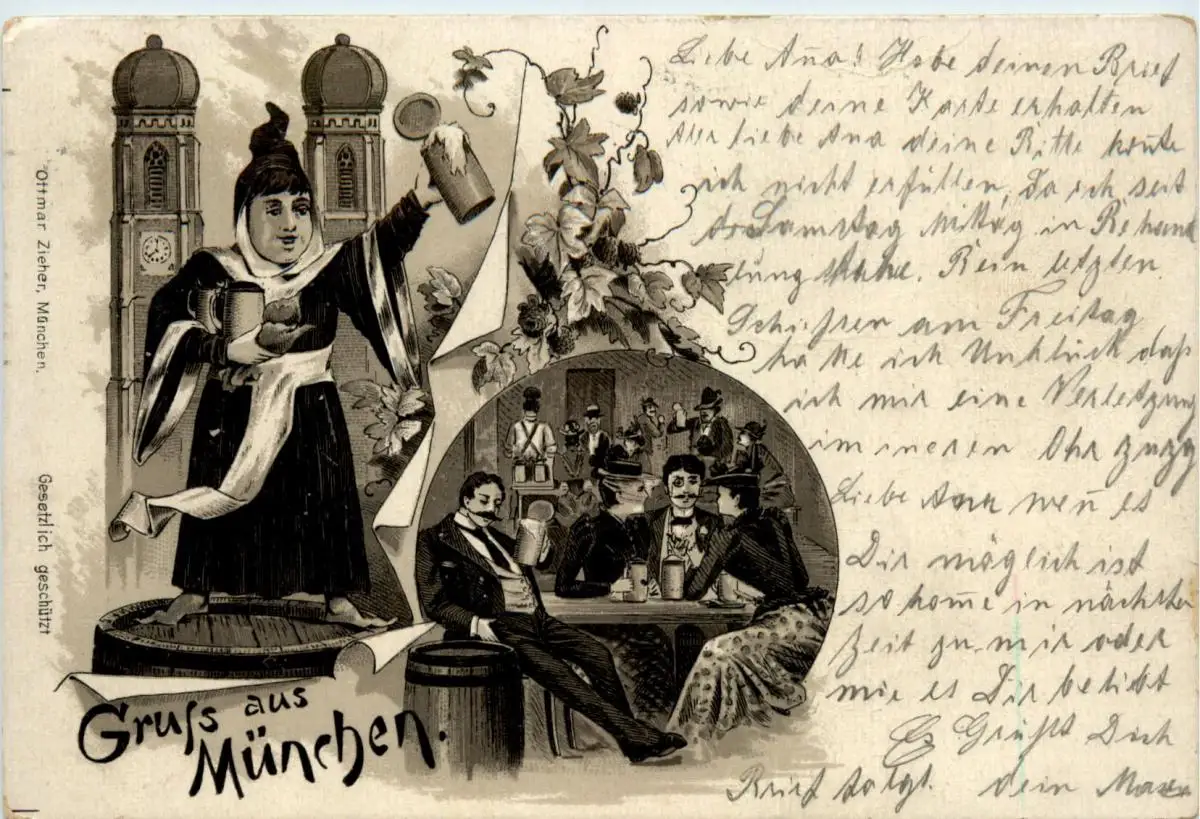 Liebe Aña! Habe deinen Brief
sowie deine Karte erhalten
Aber liebe Ana deine Bitte koñte
ich nicht erfüllen, da ich seit
Samstag Mittag in Behand
lung stehe. Bein letzten
Schießen am Freitag
hatte ich Unklück daß
ich mir eine Verletzung
im ineren Ohr zuzg
Liebe Ana weñ es
Dir möglich ist
so kom̄e in nächster
Zeit zu mir oder
wie es Dir beliebt
Es Grüßt Dich
Brief folgt. dein Maxx
Gruſs aus
München.
Ottmar Zieher, München.
Gesetzlich geschützt